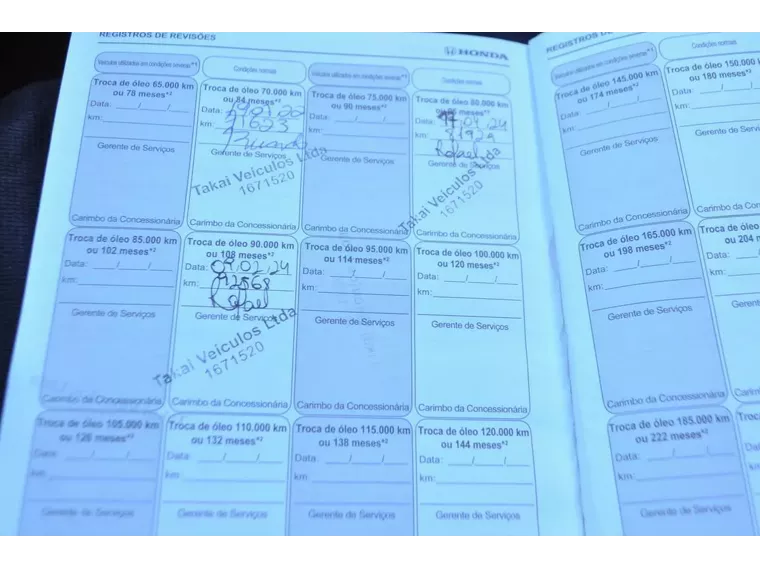 REGISTROS DE REVISÕES
HONDA
Veículos utilizados em condições severas*1
Condições normais
Veículos utilizados em condições severas*1
Condições normais
Troca de óleo 65.000 km
ou 78 meses*2
Data: ___/___/___
km:
Gerente de Serviços
Carimbo da Concessionária
Troca de óleo 70.000 km
ou 84 meses*2
Data:
km:
Gerente de Serviços
Takai Veículos Ltda
1671520
Carimbo da Concessionária
Troca de óleo 75.000 km
ou 90 meses*2
Data: ___/___/___
km:
Gerente de Serviços
Carimbo da Concessionária
Troca de óleo 80.000 km
meses*2
Data:
km:
Rafael
Gerente de Serviços
Takai Veículos Ltda
1671520
Carimbo da Concessionária
Troca de óleo 85.000 km
ou 102 meses*2
Data: ___/___/___
km:
Gerente de Serviços
Carimbo da Concessionária
Troca de óleo 90.000 km
ou 108 meses*2
Data: 09/02/24
km: 92568
Rafael
Gerente de Serviços
Takai Veículos Ltda
1671520
Carimbo da Concessionária
Troca de óleo 95.000 km
ou 114 meses*2
Data: ___/___/___
km:
Gerente de Serviços
Carimbo da Concessionária
Troca de óleo 100.000 km
ou 120 meses*2
Data: ___/___/___
km:
Gerente de Serviços
Carimbo da Concessionária
Troca de óleo 105.000 km
ou 126 meses*2
Data: ___/___/___
km:
Gerente de Serviços
Troca de óleo 110.000 km
ou 132 meses*2
Data: ___/___/___
km:
Gerente de Serviços
Troca de óleo 115.000 km
ou 138 meses*2
Data: ___/___/___
km:
Gerente de Serviços
Troca de óleo 120.000 km
ou 144 meses*2
Data: ___/___/___
km:
Gerente de Serviços
REGISTROS
Veículos utilizados em condições severas*1
Condições normais
Troca de óleo 145.000 km
ou 174 meses*2
Data: ___/___/___
km:
Gerente de Serviços
Carimbo da Concessionária
Troca de óleo 150.000
ou 180 meses*2
Data:
km:
Gerente de
Carimbo da Con
Troca de óleo 165.000 km
ou 198 meses*2
Data: ___/___/___
km:
Gerente de Serviços
Carimbo da Concessionária
Troca de óleo
ou 204
Data:
km:
Gerent
Troca de óleo 185.000 km
ou 222 meses*2
Data: ___/___/___
km:
Gerente de Serviços